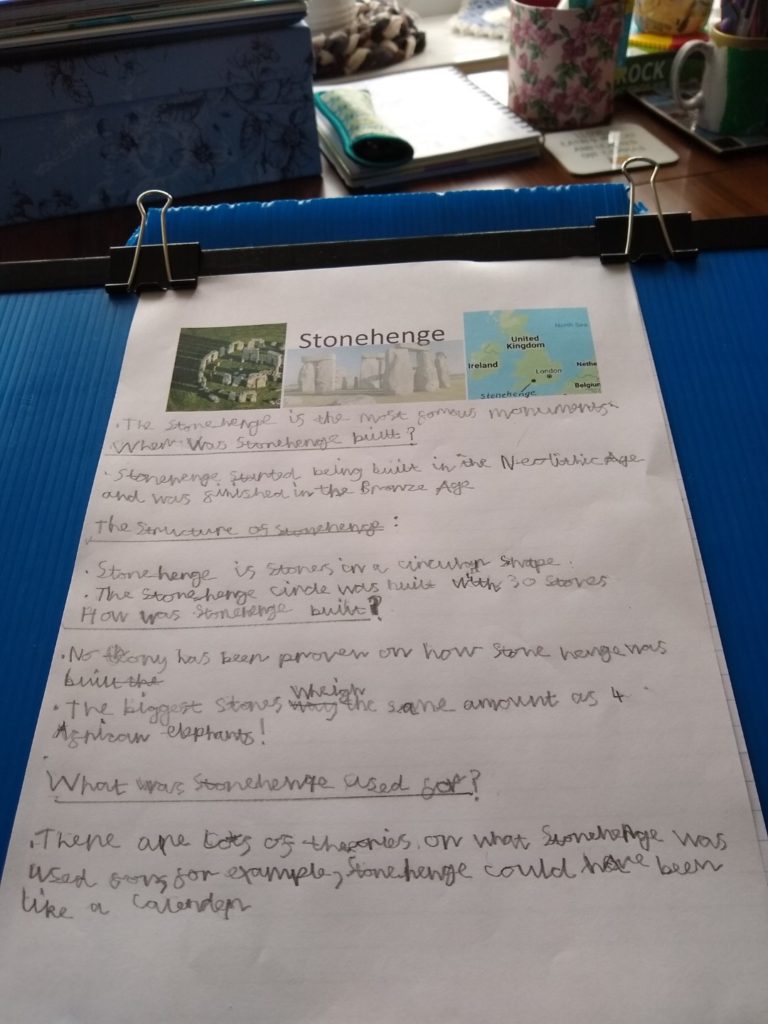 ROCK
Stonehenge
North Sea
United
Kingdom
Ireland
London
Nethe
Belgiur
Stonehenge
· The Stonehenge is the most famous monuments.
When Was Stonehenge built?
· Stonehenge started being built in the Neolithic Age
and was finished in the Bronze Age
The Structure of Stonehenge:
· Stonehenge is stones in a circular shape.
· The Stonehenge circle was built with 30 stones
How was Stonehenge built?
· No theory has been proven on how Stone henge was
built the
· The biggest stones wheigh the same amount as 4
African elephants!
What was Stonehenge used for?
· There are Lots of theories on what Stonehenge was
used for, for example, Stonehenge could have been
like a Calender